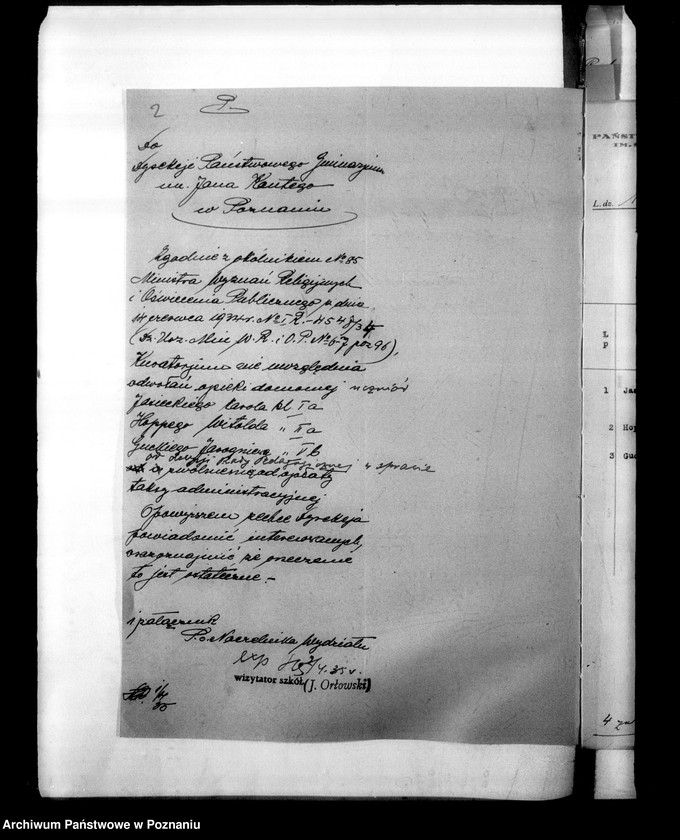 2 P.
Do
Dyrekcji Państwowego Gimnazjum
im. Jana Kantego
w Poznaniu
Zgodnie z okólnikiem Nr. 85
Ministra Wyznań Religijnych
i Oświecenia Publicznego z dnia
czerwca 1934 r. Nr. I R.-4548/34
(Dz. Urz. Min. W. R. i O. P. Nr. 6-7 poz 96),
Kuratorjum nie uwzględnia
odwołań opieki domowej uczniów
Jasieckiego Karola kl. I a
Hoppego Witolda " II a
Guckiego Jarogniewa " V b
od decyzji Rady Pedagogicznej w sprawie
zwolnienia od opłaty
taksy administracyjnej
O powyższem zechce Dyrekcja
powiadomić interesowanych,
oraz oznajmić że orzeczenie
to jest ostateczne.-
1 załącznik
P. o. Naczelnika Wydziału
exp 4.35 r.
wizytator szkół (J. Orłowski)
1/4
35
PAŃST
IM.
L. dz.
L
P
1 Jas
2 Hop
3 Guc
4 za
Archiwum Państwowe w Poznaniu